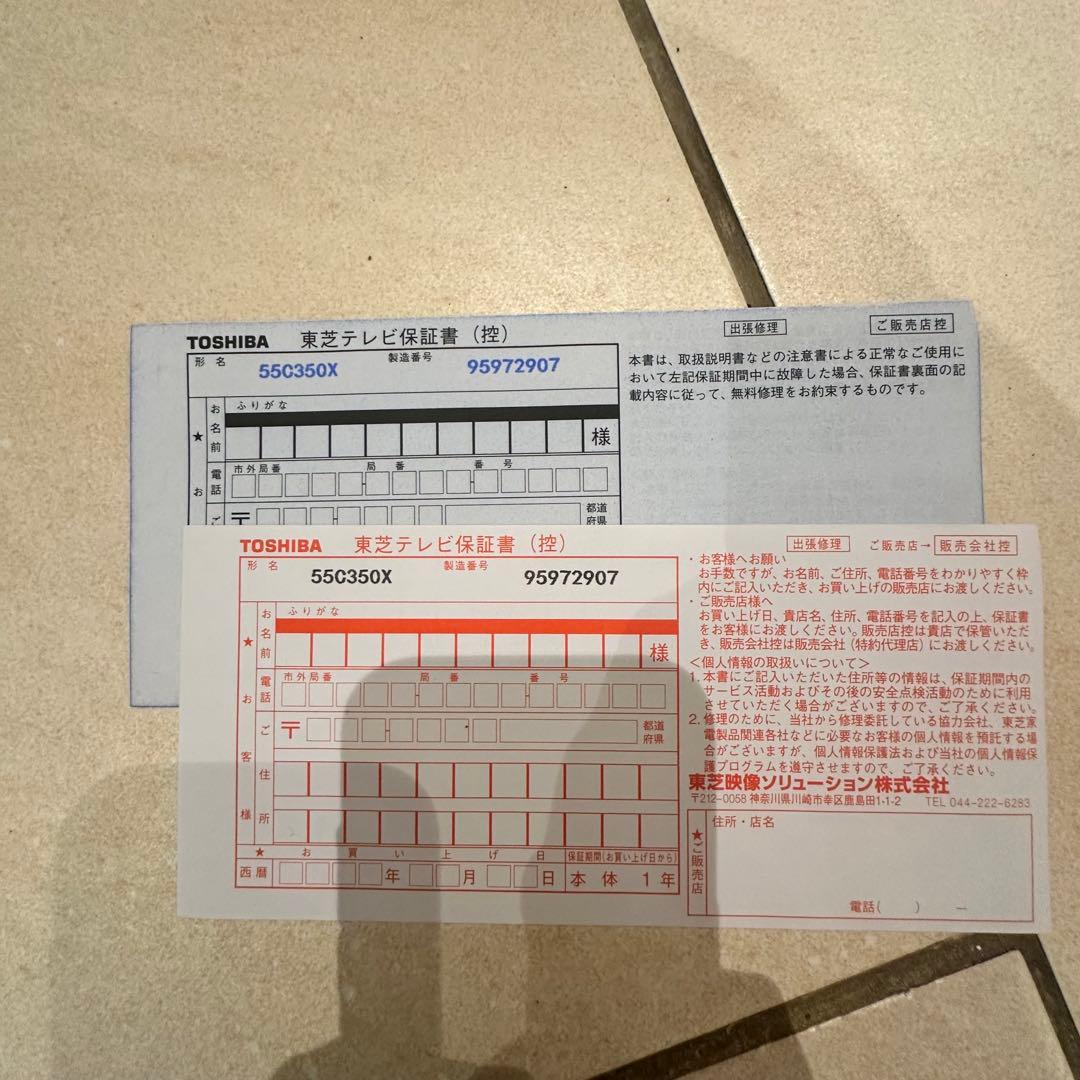 TOSHIBA 東芝テレビ保証書（控） 出張修理 ご販売店控
形名 55C350X 製造番号 95972907
本書は、取扱説明書などの注意書による正常なご使用に
おいて左記保証期間中に故障した場合、保証書裏面の記
載内容に従って、無料修理をお約束するものです。
★ お
お名前 ふりがな
様
電話 市外局番 局番 番号
ご 〒 都道府県
TOSHIBA 東芝テレビ保証書（控） 出張修理 ご販売店→ 販売会社控
形名 55C350X 製造番号 95972907
★ お客様
お名前 ふりがな
様
電話 市外局番 局番 番号
ご住所 〒 都道府県
★ お買い上げ日 保証期間(お買い上げ日から)
西暦 年 月 日 本体 1年
・お客様へお願い
お手数ですが、お名前、ご住所、電話番号をわかりやすく枠
内にご記入いただき、お買い上げの販売店にお渡しください。
・ご販売店様へ
お買い上げ日、貴店名、住所、電話番号を記入の上、保証書
をお客様にお渡しください。販売店控は貴店で保管いただ
き、販売会社控は販売会社（特約代理店）にお渡しください。
＜個人情報の取扱いについて＞
1. 本書にご記入いただいた住所等の情報は、保証期間内の
サービス活動およびその後の安全点検活動のために利用
させていただく場合がございますので、ご了承ください。
2. 修理のために、当社から修理委託している協力会社、東芝家
電製品関連各社などに必要なお客様の個人情報を預託する場
合がございますが、個人情報保護法および当社の個人情報保
護プログラムを遵守させますので、ご了承ください。
東芝映像ソリューション株式会社
〒212-0058 神奈川県川崎市幸区鹿島田1-1-2 TEL 044-222-6283
★ご販売店 住所・店名
電話( ) －